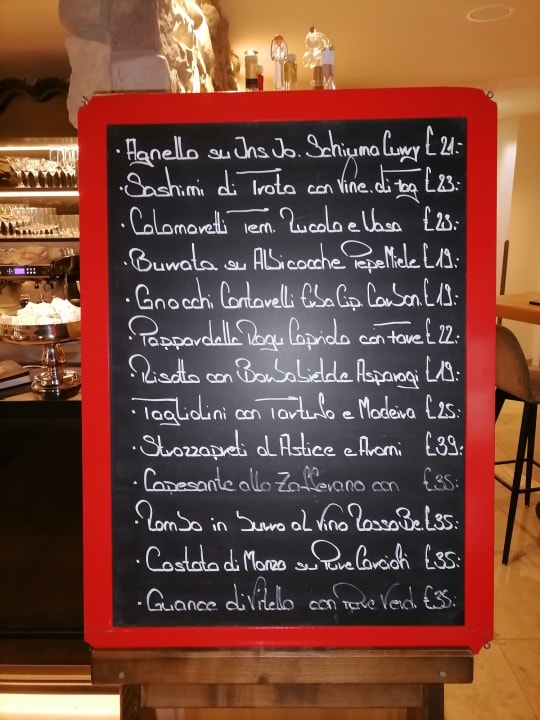 · Agnello su Ins Jo. Schiuma Curry £ 21.-
· Sashimi di Trota con Vine. di £ 23.-
· Calamaretti Tem. Rucola e Uova £ 23.-
· Burrata su Albicocche Pepe Miele £ 19.-
· Gnocchi Cantarelli Erba Cip. £ 19.-
· Pappardelle Ragu Capriolo con £ 22.-
· Risotto con Barbabietola e Asparagi £ 19.-
· Tagliolini con Tartufo e Madeira £ 25.-
· Strozzapreti al Astice e Aromi £ 39.-
· Capesante allo Zafferano con £ 35.-
· Rombo in burro al Vino Rosso Be. £ 35.-
· Costata di Manzo su Pure Carciofi £ 35.-
· Guance di Vitello con Pure Verd. £ 35.-